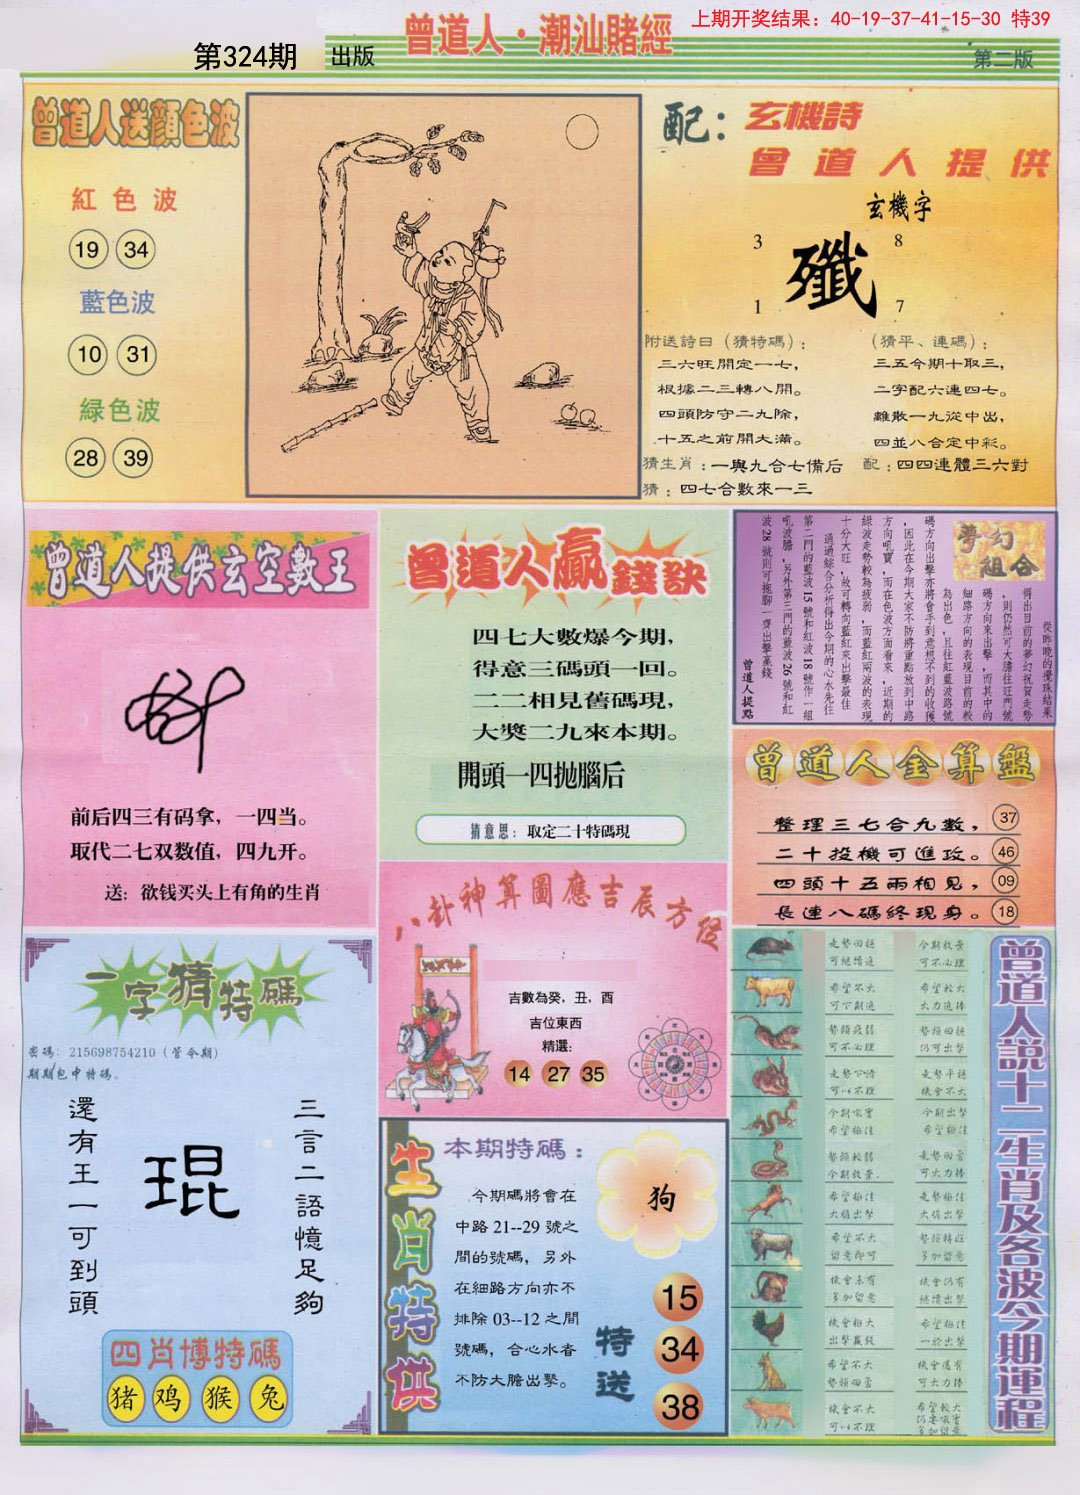 上期开奖结果：40-19-37-41-15-30 特39
曾道人·潮汕賭經
第324期
出版
第二版
曾道人送顏色波
紅色波
19 34
藍色波
10 31
緑色波
28 39
配：
玄機詩
曾道人提供
玄機字
3 8
殲
1 7
附送詩曰（猜特碼）：
三六旺開定一七，
根據二三轉八開。
四頭防守二九除，
十五之前開大滿。
（猜平、連碼）：
三五今期十取三，
二字配六連四七。
離散一九從中出，
四並八合定中彩。
猜生肖：一與九合七備后
配：四四連體三六對
猜：四七合數來一三
曾道人提供玄空數王
前后四三有码拿，一四当。
取代二七双数值，四九开。
送：欲钱买头上有角的生肖
曾道人贏錢訣
四七大數爆今期，
得意三碼頭一回。
二二相見舊碼現，
大獎二九來本期。
開頭一四拋腦后
猜意思：取定二十特碼現
夢幻組合
從昨晚的攪珠結果
得出目前的夢幻祝賀走勢
，則仍然可大膽往旺門號
碼方向來出擊，而其中的
細路方向的表現目前的較
為出色，且往紅藍波路號
碼方向出擊亦將會手到意想不到的收獲
，因此在今期大家不防將重點放到中路
方向吼寶，而在色波方面看來，近期的
綠波走勢較為疲弱，而藍紅兩波的表現
十分大旺，故可轉向藍紅來出擊最佳
通過綜合分析得出今期的心水先往
第二門的藍波15號和紅波18號作一組
吼波膽，另外第三門的藍波26號和紅
波28號則可拖腳一齊出擊贏錢
曾道人提點
曾道人金算盤
整理三七合九數， 37
二十投機可進攻。 46
四頭十五兩相見， 09
長連八碼終現身。 18
八卦神算圖應吉辰方位
吉數為癸，丑，酉
吉位東西
精選：
14 27 35
一字猜特碼
密碼：215698754210（管今期）
期期包中特碼、
三言二語憶足夠
琨
還有王一可到頭
四肖博特碼
猪 鸡 猴 兔
生肖特供
本期特碼：
今期碼將會在
中路21--29號之
間的號碼，另外
在細路方向亦不
排除03--12之間
號碼，合心水者
不防大膽出擊。
狗
特送
15
34
38
曾道人說十二生肖及各波今期運程
走勢回穩 今期放棄
可繼續追 可不必理
希望不大 希望較大
可下期追 大力追捧
勢頭疲弱 勢頭回穩
可不必理 仍可出擊
走勢下滑 走勢平穩
可以不理 機會不大
今期吼實 今期出擊
希望極佳 希望極佳
勢頭較弱 走勢回勇
今期放棄 可大力捧
希望極佳 走勢極佳
大膽出擊 大膽出擊
希望不大 勢頭轉旺
留意即可 多加留意
機會未有 機會仍有
多加留意 繼續出擊
機會極大 希望極佳
出擊贏錢 一於出擊
希望不大 機會還有
勢頭回勇 可大力捧
機會不大 希望較大
可以不理 仍要吼實
多加留意